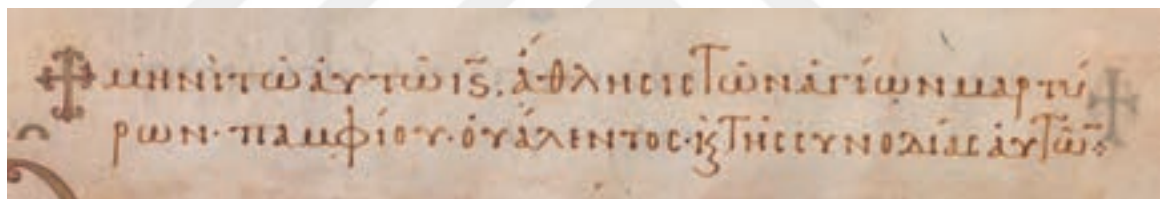 ☩ μηνὶ τῶ ἀυτῶ ις̅. ἄθλησις τῶν ἁγίων μαρτύ
ρων· παμφίου· ὀυάλεντος· κ͵ τῆς συνοδίας ἀυτῶ̅: